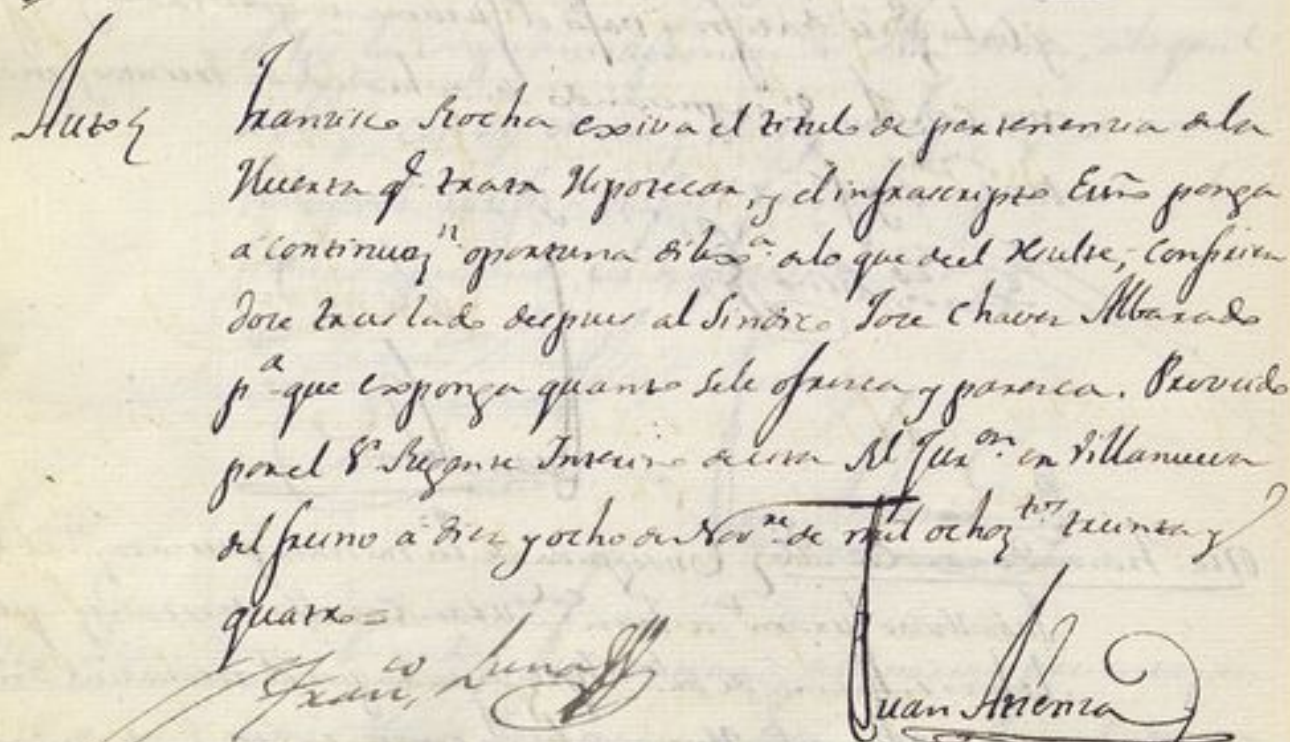 Auto
Francisco Rocha exsiva el titulo de pertenencia dela
Huerta qe. trata Hipotecar, y el infrascripto Esno ponga
a continuazn. oportuna dilixa. alo que de el Resulte, confirien
dose traslado despues al Sindico Jose Chaves Albarado
pa. que exponga quanto sele ofresca y paresca. Proveido
por el Sr. Regente Interino de esta Rl. Juron. en Villanueva
del fresno a diez y ocho de Novre. de mil ochoztos. treinta y
quatro=
Franco. Luna
Juan Atienza